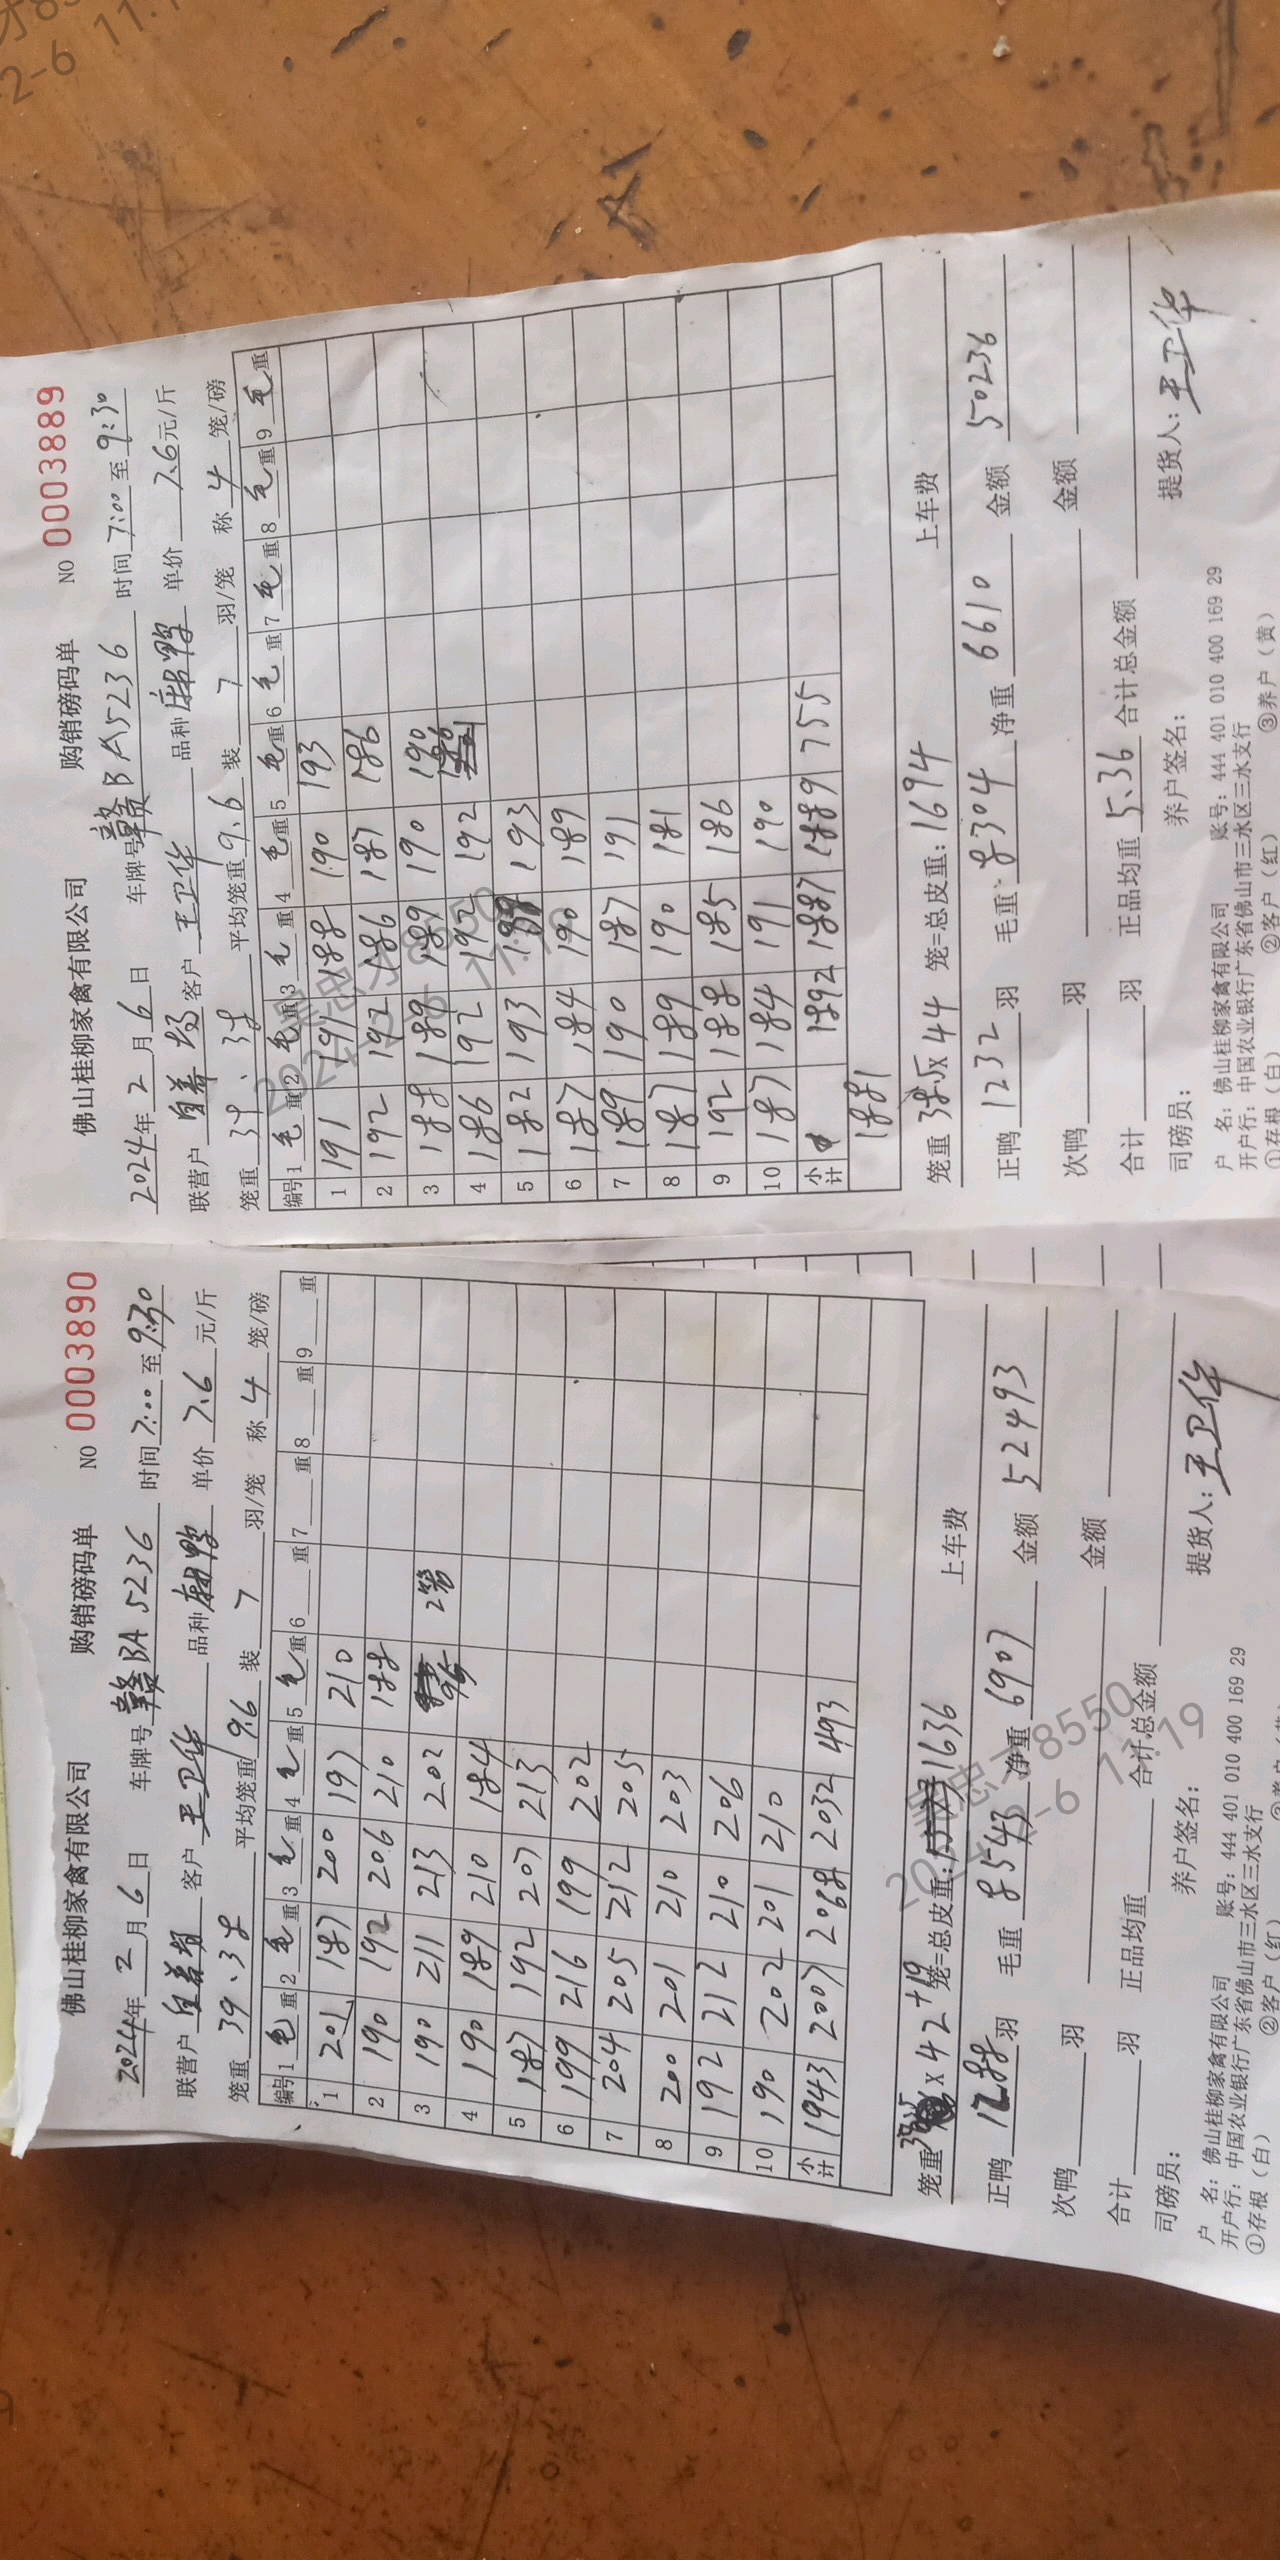 佛山桂柳家禽有限公司 购销磅码单 NO 0003889
2024年2月6日 车牌号 赣BA5236 时间 7:00至9:30
联营户 自养场 客户 王卫华 品种 麻鸭 单价 7.6元/斤
笼重 39、38 平均笼重 9.6 装 7 羽/笼 称 4 笼/磅
编号 1毛重 2毛重 3毛重 4毛重 5毛重 6毛重 7毛重 8毛重 9毛重
1 191 191 188 190 193
2 192 192 186 187 186
3 188 188 189 190 190
4 186 192 192 192 186
5 182 193 193
6 187 184 190 189
7 189 190 187 191
8 187 189 190 181
9 192 188 185 186
10 187 184 191 190
小计 1892 1887 1889 755
1881
笼重 38.5×44 笼=总皮重:1694 上车费
正鸭 1232 羽 毛重 8304 净重 6610 金额 50236
次鸭 羽 金额
合计 羽 正品均重 5.36 合计总金额
司磅员: 养户签名: 提货人: 王卫华
户 名: 佛山桂柳家禽有限公司 账号: 444 401 010 400 169 29
开户行: 中国农业银行广东省佛山市三水区三水支行
①存根(白) ②客户(红) ③养户(黄)
佛山桂柳家禽有限公司 购销磅码单 NO 0003890
2024年2月6日 车牌号 赣BA5236 时间 7:00至9:30
联营户 自养场 客户 王卫华 品种 麻鸭 单价 7.6元/斤
笼重 39、38 平均笼重 9.6 装 7 羽/笼 称 4 笼/磅
编号 1毛重 2毛重 3毛重 4毛重 5毛重 6重 7重 8重 9重
1 201 187 200 197 210
2 190 192 206 210 188
3 190 211 213 202 95 2笼
4 190 189 210 184
5 187 192 207 213
6 199 216 199 202
7 204 205 212 205
8 200 201 210 203
9 192 212 210 206
10 190 202 201 210
小计 1943 2007 2068 2032 493
笼重 38.5×42+19 笼=总皮重: 1636 上车费
正鸭 1288 羽 毛重 8543 净重 6907 金额 52493
次鸭 羽 金额
合计 羽 正品均重 合计总金额
司磅员: 养户签名: 提货人: 王卫华
户 名: 佛山桂柳家禽有限公司 账号: 444 401 010 400 169 29
开户行: 中国农业银行广东省佛山市三水区三水支行
①存根(白) ②客户(红)
吴忠才8550
2024-2-6 11:19